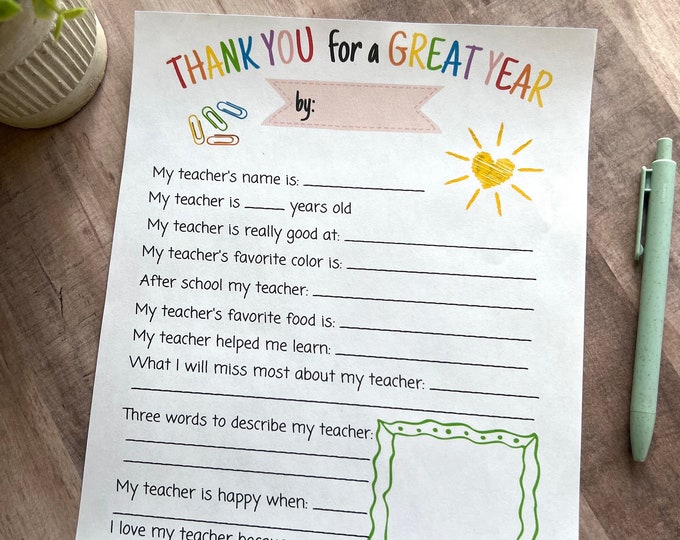 THANK YOU for a GREAT YEAR
by:
My teacher's name is:
My teacher is years old
My teacher is really good at:
My teacher's favorite color is:
After school my teacher:
My teacher's favorite food is:
My teacher helped me learn:
What I will miss most about my teacher:
Three words to describe my teacher:
My teacher is happy when:
I love my teacher